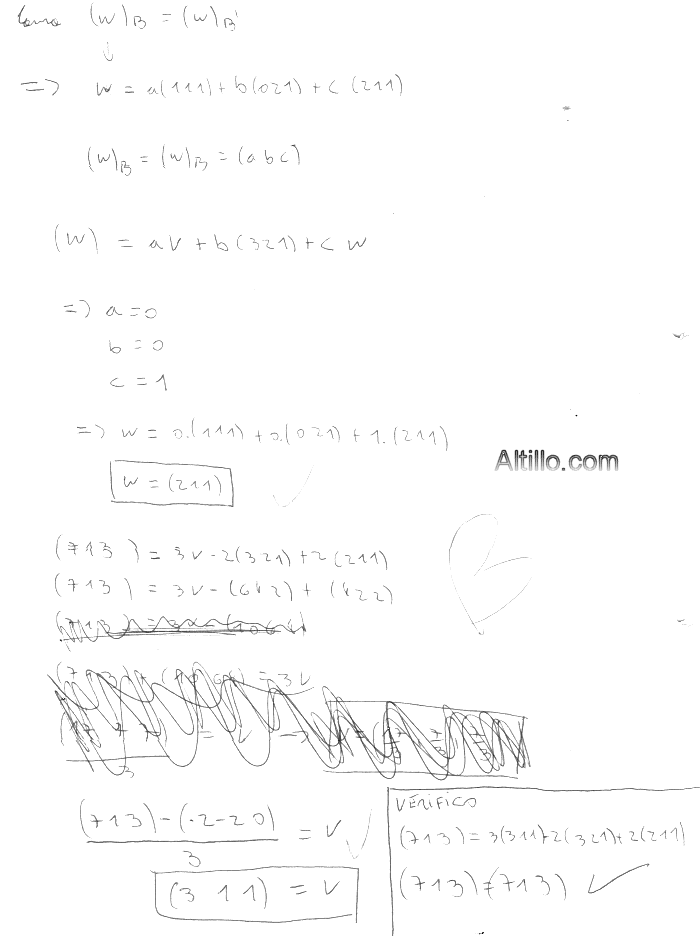 Como (w)B = (w)B'
↓
=> w = a(111) + b(021) + c(211)
(w)B = (w)B = (abc)
(w) = av + b(321) + c w
=> a = 0
b = 0
c = 1
=> w = 0.(111) + 0.(021) + 1.(211)
Altillo.com
w = (211)
(713) = 3v - 2(321) + 2(211)
(713) = 3v - (642) + (422)
(713)-(-2-20) / 3 = v
(3 1 1) = v
VERIFICO
(713) = 3(311)-2(321)+2(211)
(713) = (713) ✓